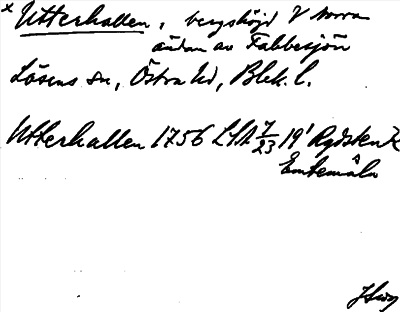 x Utterhallen, bergshöjd V norra
ändan av Fabbesjön
Lösens sn, Östra hd, Blek. l.
Utterhallen 1756 LSA 7/23 19' Rydsten
Entemåla